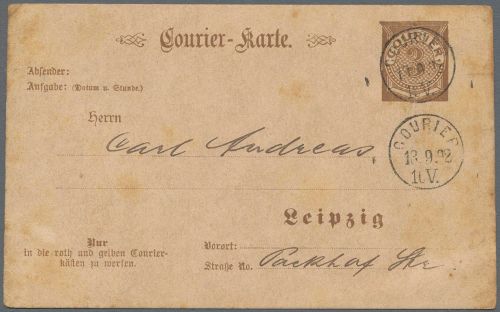 Courier-Karte.
Absender:
Aufgabe: (Datum u. Stunde.)
Herrn
Carl Andreas
COURIER
13.9.92
Leipzig
Nur
in die roth und gelben Courier-
kästen zu werfen.
Vorort:
Straße No. Packhof Str